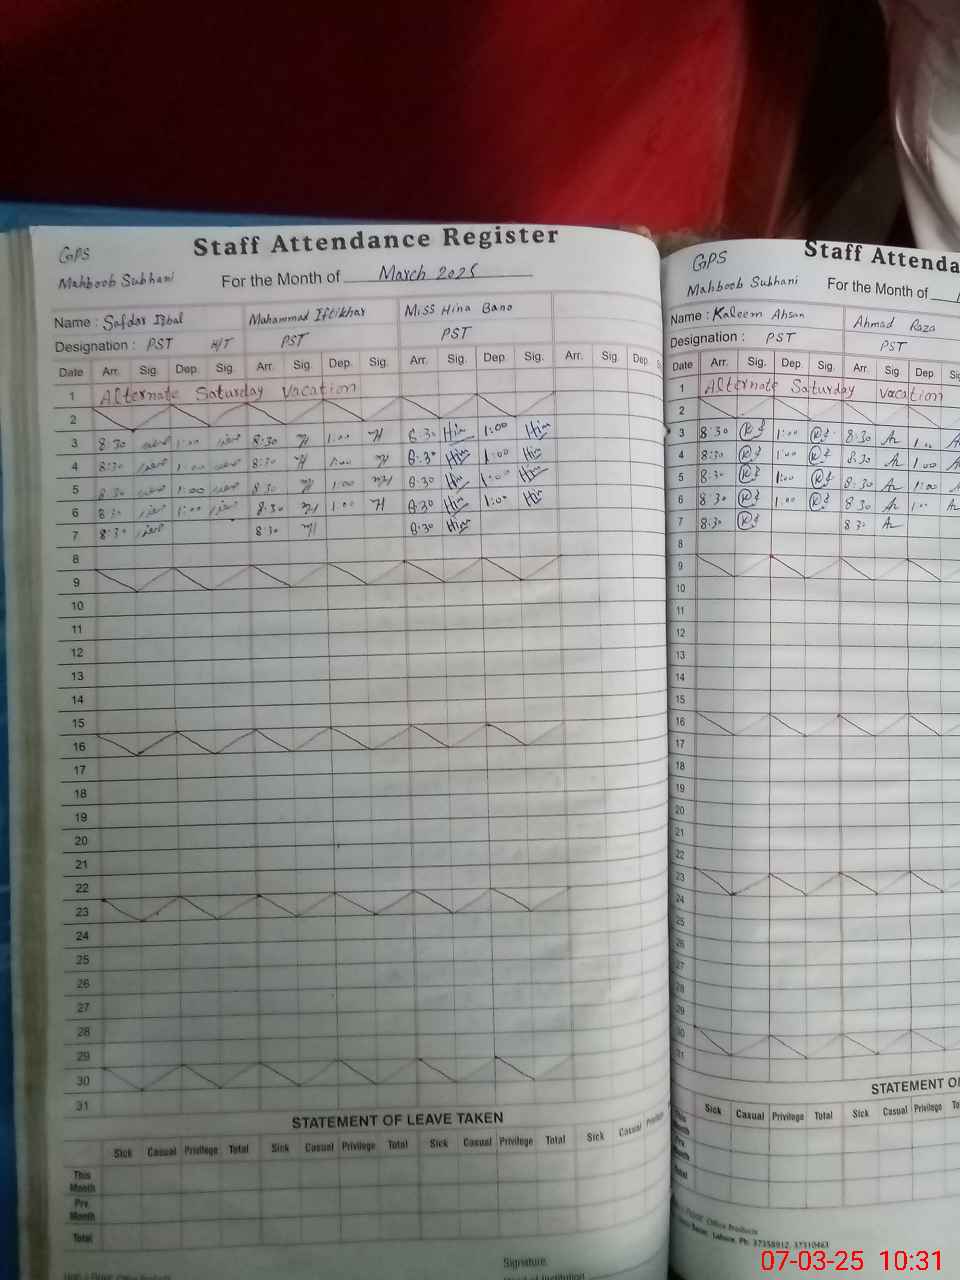 GPS
Staff Attendance Register
Mahboob Subhani
For the Month of March 2025
Name : Safdar Iqbal Muhammad Iftikhar Miss Hina Bano
Designation : PST H/T PST PST
Date Arr. Sig. Dep. Sig. Arr. Sig. Dep. Sig. Arr. Sig. Dep. Sig. Arr. Sig. Dep
1 Alternate Saturday Vacation
2
3 8:30 1:00 8:30 1:00 8:30 Hin 1:00 Hin
4 8:30 1:00 8:30 1:00 8:30 Hin 1:00 Hin
5 8:30 1:00 8:30 1:00 8:30 Hin 1:00 Hin
6 8:30 1:00 8:30 1:00 8:30 Hin 1:00 Hin
7 8:30 8:30 8:30 Hin
8
9
10
11
12
13
14
15
16
17
18
19
20
21
22
23
24
25
26
27
28
29
30
31
STATEMENT OF LEAVE TAKEN
Sick Casual Privilege Total Sick Casual Privilege Total Sick Casual Privilege Total Sick Casual
This Month
Prv. Month
Total
Signature
GPS
Staff Attenda
Mahboob Subhani
For the Month of
Name : Kaleem Ahsan Ahmad Raza
Designation : PST PST
Date Arr. Sig. Dep. Sig. Arr. Sig. Dep
1 Alternate Saturday vacation
2
3 8:30 1:00 8:30 1:00
4 8:30 1:00 8:30 1:00
5 8:30 1:00 8:30 1:00
6 8:30 1:00 8:30 1:00
7 8:30 8:30
8
9
10
11
12
13
14
15
16
17
18
19
20
21
22
23
24
25
26
27
28
29
30
31
STATEMENT O
Sick Casual Privilege Total Sick Casual Privilege
This Month
Prv. Month
Total
Office Products
Lahore. Ph: 37358912, 37310463
07-03-25 10:31